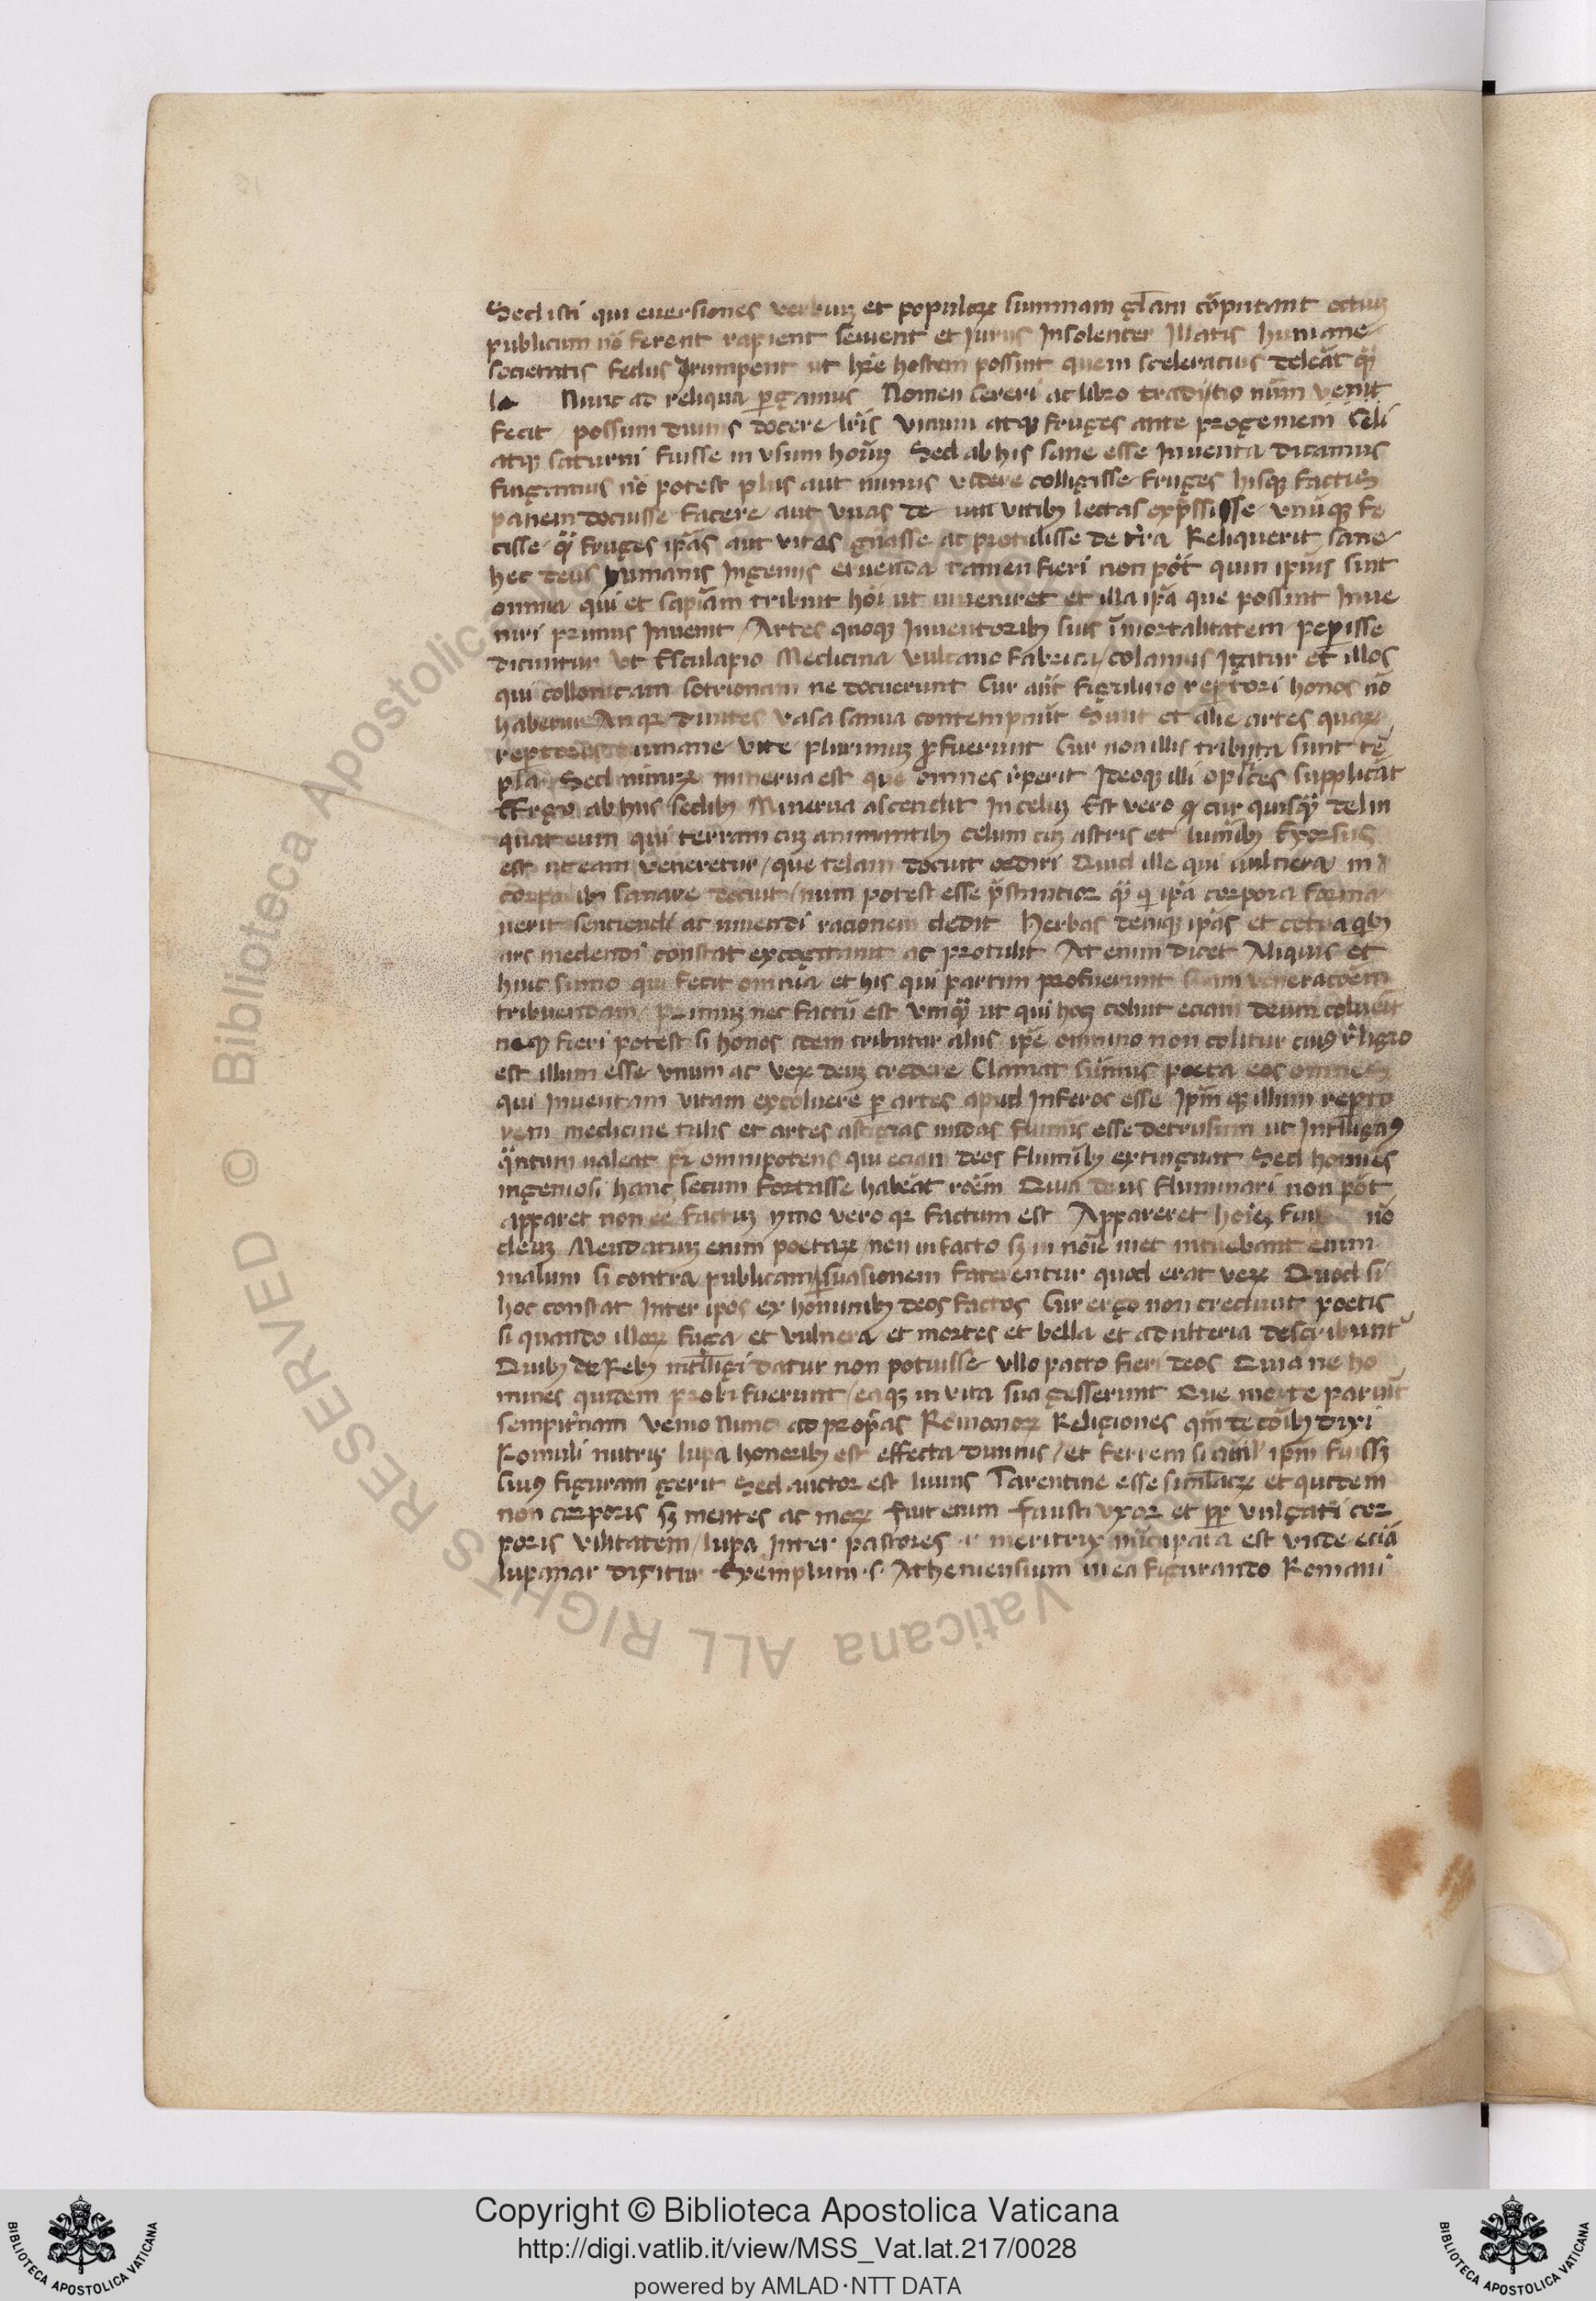 Sed isti qui euersiones verbuꝫ et populoꝝ summam gl̄am cōputant octiuꝫ
publicum nō ferent rapient seuient et Jurijs Insolenter Illatis humane
societatis fedus Jrumpent ut hr̄e hostem possint quem sceleracius deleāt qͣꝫ
la Nunc ad reliqua ꝑgamus Nomen Cereri ac libro traditio nūm venit
fecit / possum diuinis docere lr̄is vinum atqꝫ fruges ante progeniem Celi
atqꝫ saturni fuisse in vsum hoīuꝫ Sed ab his sane esse Inuenta dicamus
fingamus nō potest plus aut minus videre colligisse fruges hisqꝫ factis
panem docuisse facere aut vuas de vitibꝫ lectas exp̄ssisse vnūqꝫ fe
cisse qͣꝫ fruges ip̄as aut vites gn̄asse ac protulisse de tr̄ra Reliquerit sane
hec deus humanis Ingenijs eruenda tamen fieri non pōt quin ipius sint
omnia qui et sapīam tribuit hōi ut inueniret et illa ip̄a que possint Inue
niri primus Inuenit / Artes quoqꝫ Inuentoribꝫ suis īmortalitatem peperisse
dicuntur Vt Esculapio Medicina vulcano fabrica / colamus Igitur et illos
qui collonicam sotrionam ne docuerunt Cur aūt figulino reptori honos nō
habetur An qꝛ diuites vasa samia contempnūt Sunt et alie artes quaꝝ
reptores humane vite plurimuꝫ ꝓfuerunt Cur non illis tributa sunt tē
pla Sed nimiꝝ minerua est que omnes r̄perit Ideoqꝫ illi opīces supplicāt
Ergo ab hijs sedibꝫ Minerua ascendit in celuꝫ Est vero qͥ cur quisqͣꝫ delin
quat eum qui terram cuꝫ animantibꝫ celum cuꝫ astris et luminibꝫ Exorsus
est ut eam veneretur / que telam docuit oediri Quid ille qui vulnera in
corporibꝫ sanare docuit / num potest esse p̄stancior qͣꝫ qͥ ip̄a corpora forma
uerit senciendi ac viuendi racionem dedit Herbas deniqꝫ ip̄as et cetera qͥbꝫ
ars medendi constat excogitauit ac protulit At enim dicet Aliquis et
huic sumo qui fecit omnia et his qui partim profuerunt suam veneracōem
tribuendam / Primuꝫ nec factū est vmqͣꝫ ut qui hos coluit eciam deum coluerit
neqꝫ fieri potest si honos idem tribuitur alijs ip̄e omnino non colitur cuiꝰ r̄ligio
est illum esse vnum ac veꝝ deuꝫ credere Clamat sūmus poeta eos omnes
qui Inuentam vitam excoluere ꝑ artes apud Inferos esse Ip̄m qꝫ illum repto
rem medicine talis et artes astigias vndas fulmīs esse detrusum ut Intelligamꝰ
qͣntum valeat pr̄ omnipotens qui eciam deos fluminibꝫ extinguat Sed homīes
ingeniosi hanc secum fortasse habeāt rōem Quia deus fluminari non pōt
apparet non eē factuꝫ ymo vero qꝛ factum est Appareret hoīeꝫ fuisse nō
deuꝫ Mendatiuꝫ enim poetaꝝ non in facto sꝫ in noīe met intuebant enim
malum si contra publicam ꝑsuasionem faterentur quod erat veꝝ Quod si
hoc constat Inter ipos ex hominibꝫ deos factos Cur ergo non credunt poetis
si quando illoꝝ fuga et vulnera et mortes et bella et adulteria describunt
Quibꝫ de Rebꝫ intelligi datur non potuisse vllo pacto fieri deos Quia ne ho
mines quidem probi fuerunt / eaqꝫ in vita sua gesserunt Que morte pariūt
sempitr̄nam Venio Nunc ad prop̄as Romanoꝝ Religiones qm̄ de cōibꝫ dixi
Romuli nutrix lupa honoribꝫ est effecta diuinis / et ferrem si aīal ip̄m fuisset
Cuiꝰ figuram gerit Sed auctor est liuius Larentine esse simulacꝝ et quidem
non corporis sꝫ mentes ac moꝝ fuit enim fausti vxor et ꝓp̄ vulgati cor
poris vilitatem / lupa Inter pastores .i. meritrix nūcupata est vnde eciā
lupanar dicitur Exemplum .s. Atheniensium in ea figurando Romani
Copyright © Biblioteca Apostolica Vaticana
http://digi.vatlib.it/view/MSS_Vat.lat.217/0028
powered by AMLAD·NTT DATA
© Biblioteca Apostolica Vaticana ALL RIGHTS RESERVED
BIBLIOTECA APOSTOLICA VATICANA
BIBLIOTECA APOSTOLICA VATICANA